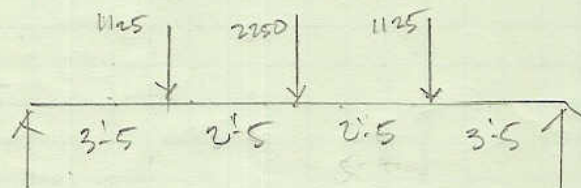 1125 2250 1125
3'-5 2'-5 2'-5 3'-5